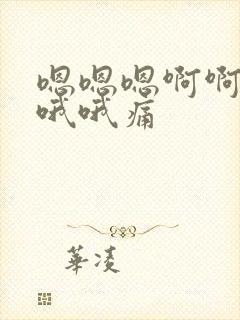 嗯嗯嗯啊啊
哦哦痛
華凌